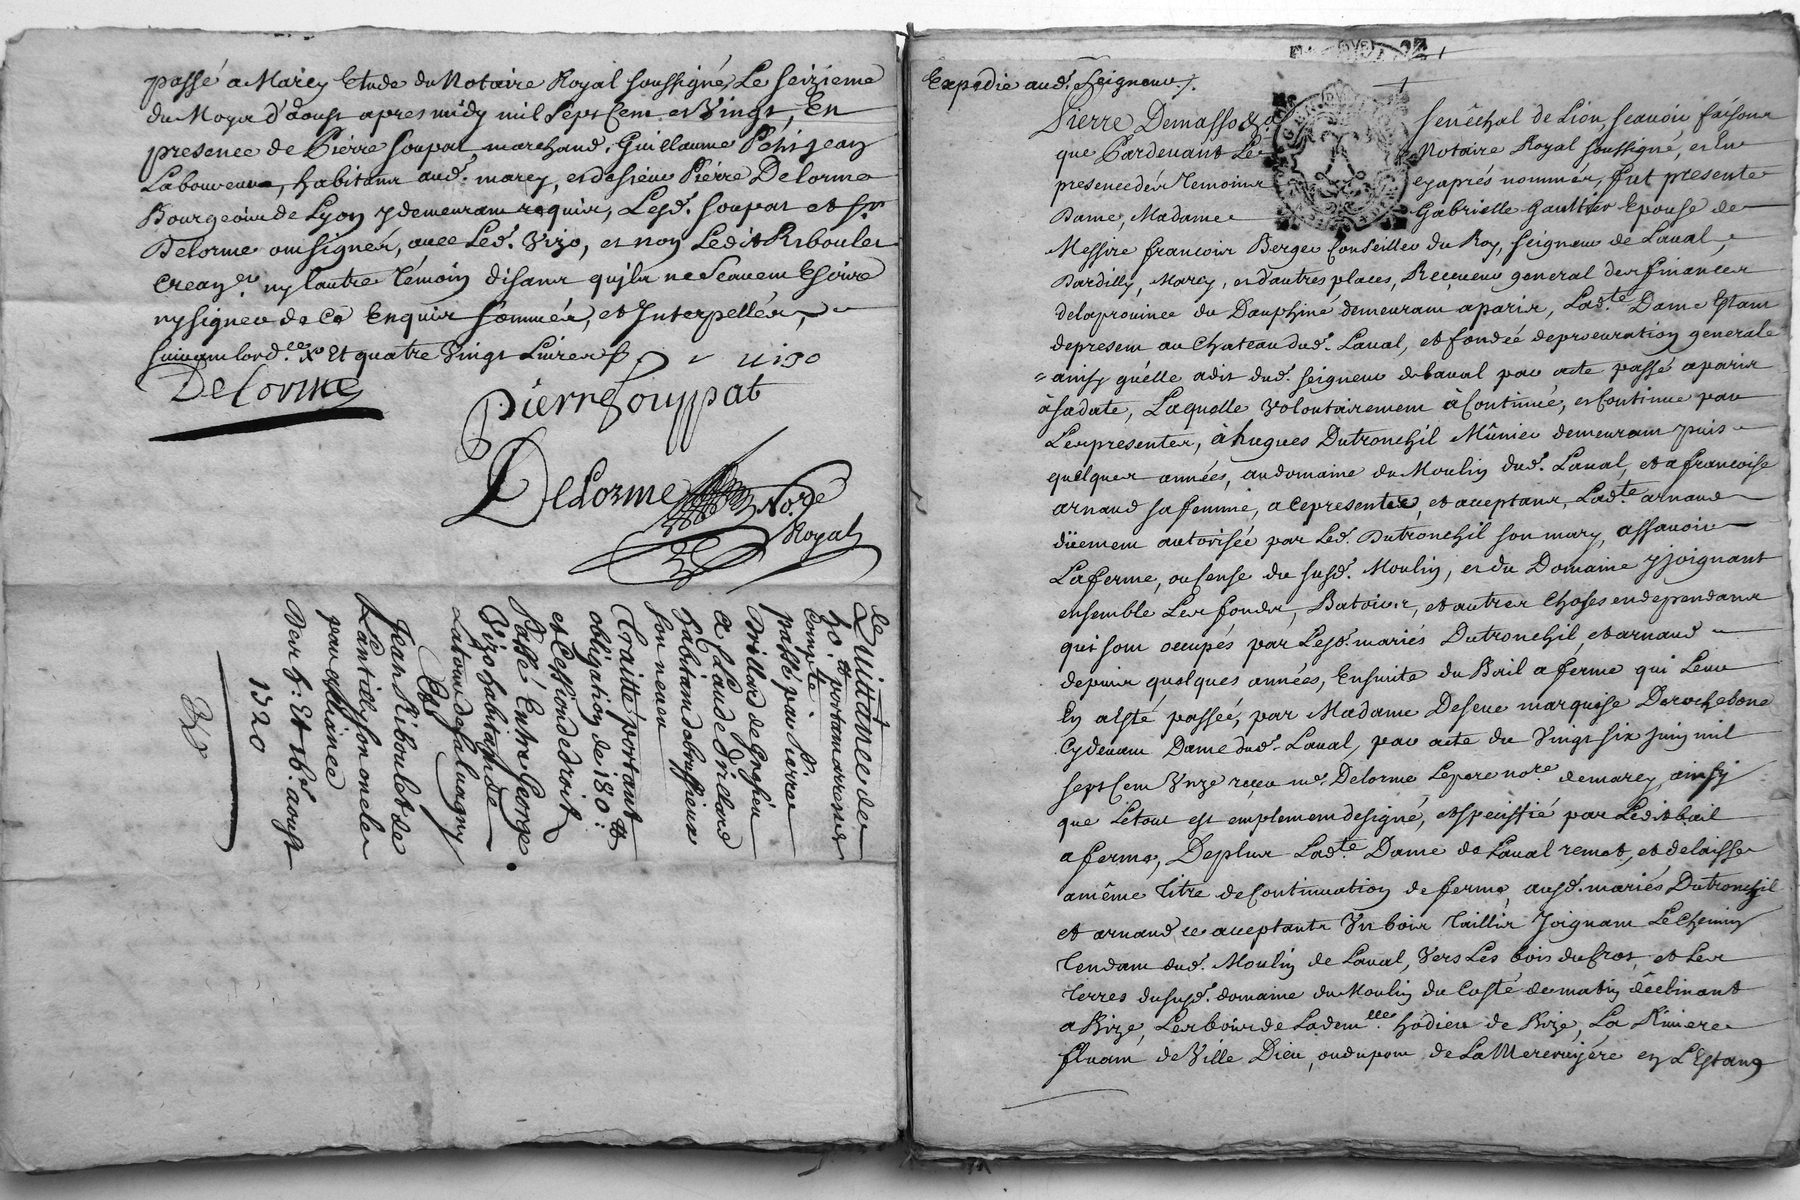 passé a Marcy Etude du Notaire Royal soussigné, Le seizieme
du Moyes d'aoust apres midy mil sept Cent et Vingt, En
presence de Pierre Soupat marchand, Guillaume Petitjean
Laboureur, habitans aud.t marcy, et de sieur Pierre Delorme
Bourgeois de Lyon y demeurant requis, Lesd. Soupat et Sr
Delorme ont signés, avec Led. Vizo, et non Ledit Riboulet
ny lautre témoin disans quils ne scavent Escrire
ny signer de ce Enquis sommés, et Interpellés,
suivant lord.ce Et quatre Vingt Livres
Delorme
Pierre Souppat
Delorme No.re
Royal
Quittance de
portant arresté
compte
passé par Pierre
Brillard de
a Claude Brillard
habitant de
son neveu
Traitté portant
obligation de 180 tt
et Cession de droit
Passé Entre George
Vizo habitant de
Latour de Salvagny
Et
Jean Riboulet de
Lentilly son oncle
par
Des 8: Et 16.e aoust
1720
Expédié aud. Seigneur
Pierre Demasso & a Senêchal de Lion, scavoir faisons
que Pardevant Le Notaire Royal soussigné, et En
presence des Temoins cy aprés nommés, fut presente
Dame, Madame Gabrielle Gaultier Epouse de
Messire francois Berger Conseiller du Roy, seigneur de Laval,
Dardilly, Marcy, et d'autres places, Receveur general des finances
de la province du Dauphiné demeurant a paris, Lad.te Dame Estant
de present au Chateau dud. Laval, et fondée de procuration generale
ainsy qu'elle a dit dud. seigneur de Laval par acte passé a paris
à sa date, Laquelle Volontairement à Continué, et Continue par
Les presentes, à hugues Dutronchil Mûnier demeurant puis
quelques années, au domaine du Moulin dud. Laval, et a francoise
arnaud sa femme, a ce presentes, et acceptans, Lad.te arnaud
düement autorisée par Led. Dutronchil son mary, assavoir
La ferme, ou Cense du susd. Moulin, et du Domaine y joignant
ensemble Les fonds, Batoirs, et autres Choses en dependans
qui sont occupés par Lesd. mariés Dutronchil et arnaud
depuis quelques années, Ensuite du Bail a ferme qui Leur
En a Esté passée, par Madame Deseve marquise De rochebone
Cydevant Dame dud. Laval, par acte du Vingt six juin mil
sept Cent Unze receu me. Delorme Le pere no.re de marcy, ainsy
que Le tout est emplement designé, et speciffié par Ledit bail
a ferme, De plus Lad.te Dame de Laval remet, et delaisse
a même Titre de Continuation de ferme, ausd. mariés Dutronchil
et arnaud ce acceptants Un bois Taillis Joignant Le Chemin
Tendant dud. Moulin de Laval, Vers Les bois du Crot, et Les
Terres du susd. domaine du Moulin du Costé de matin déclinant
a Bize, Les bois de La dem.lle hodieu de Bize, La Riviere
fluant de Ville Dieu, ou du pont de La Mercruyére en L'Estang